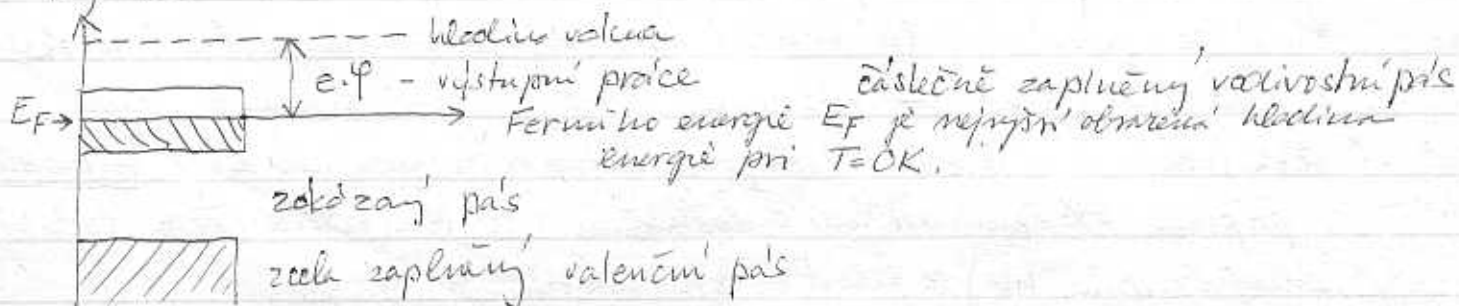 hladina vakua
e.φ - výstupní práce
částečně zaplněný vodivostní pás
E_F → Fermiho energie E_F je nejvyšší obsazená hladina
energie při T=0K.
zakázaný pás
zcela zaplněný valenční pás